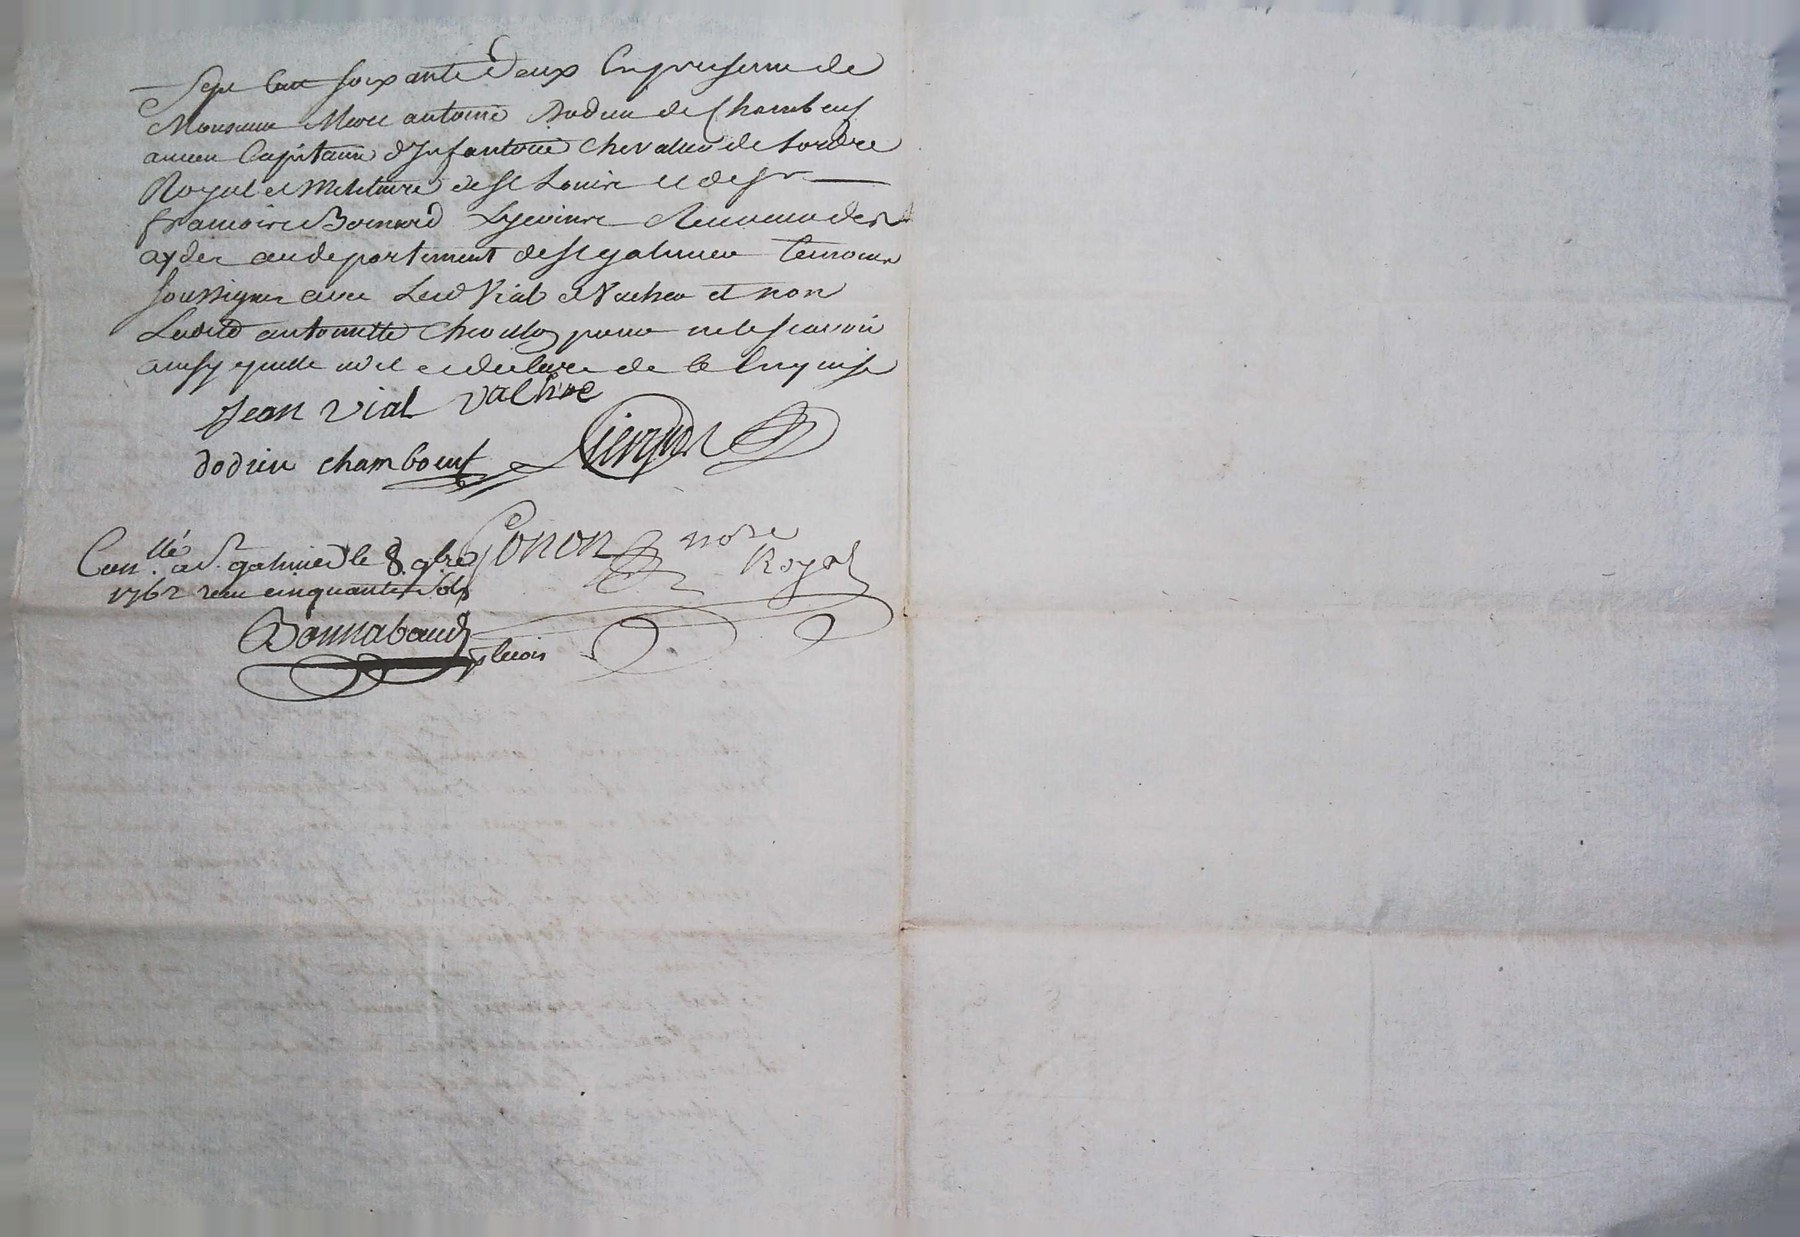 Sept Cent soixante Deux En presence de
Monsieur Marc antoine Dodieu de Chambeuf
ancien Capitaine d'Infanterie Chevalier de Lordre
Royal et Militaire de St Louis et de sr
francois Bernard receveur des
aydes au departement de St galmier temoins
soussignes avec Lesd Vial et Vacher et non
Ladite antoinette pour ne le scavoir
ainsy quelle a dit et declare de ce Enquise
Jean vial vachre
dodieu chamboeuf
Gonon nore
Royal
Con.llé a St. galmier le 8. 9bre
1762 recu cinquante sols
Bonnabaud